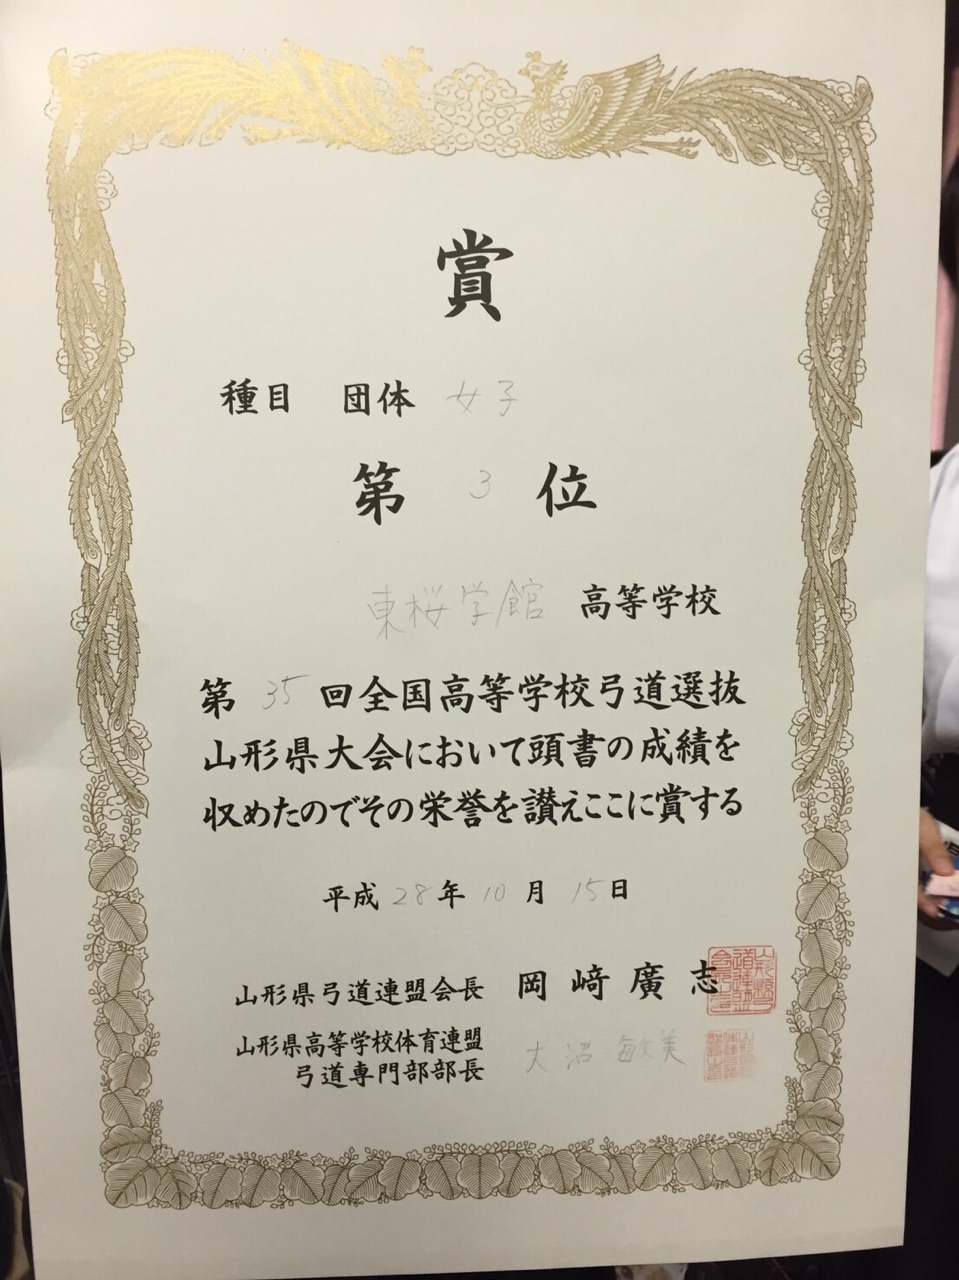 賞
種目 団体 女子
第 3 位
東桜学館 高等学校
第 35 回全国高等学校弓道選抜
山形県大会において頭書の成績を
収めたのでその栄誉を讃えここに賞する
平成 28 年 10 月 15 日
山形県弓道連盟会長 岡﨑廣志
山形県高等学校体育連盟
弓道専門部部長 大沼敏美